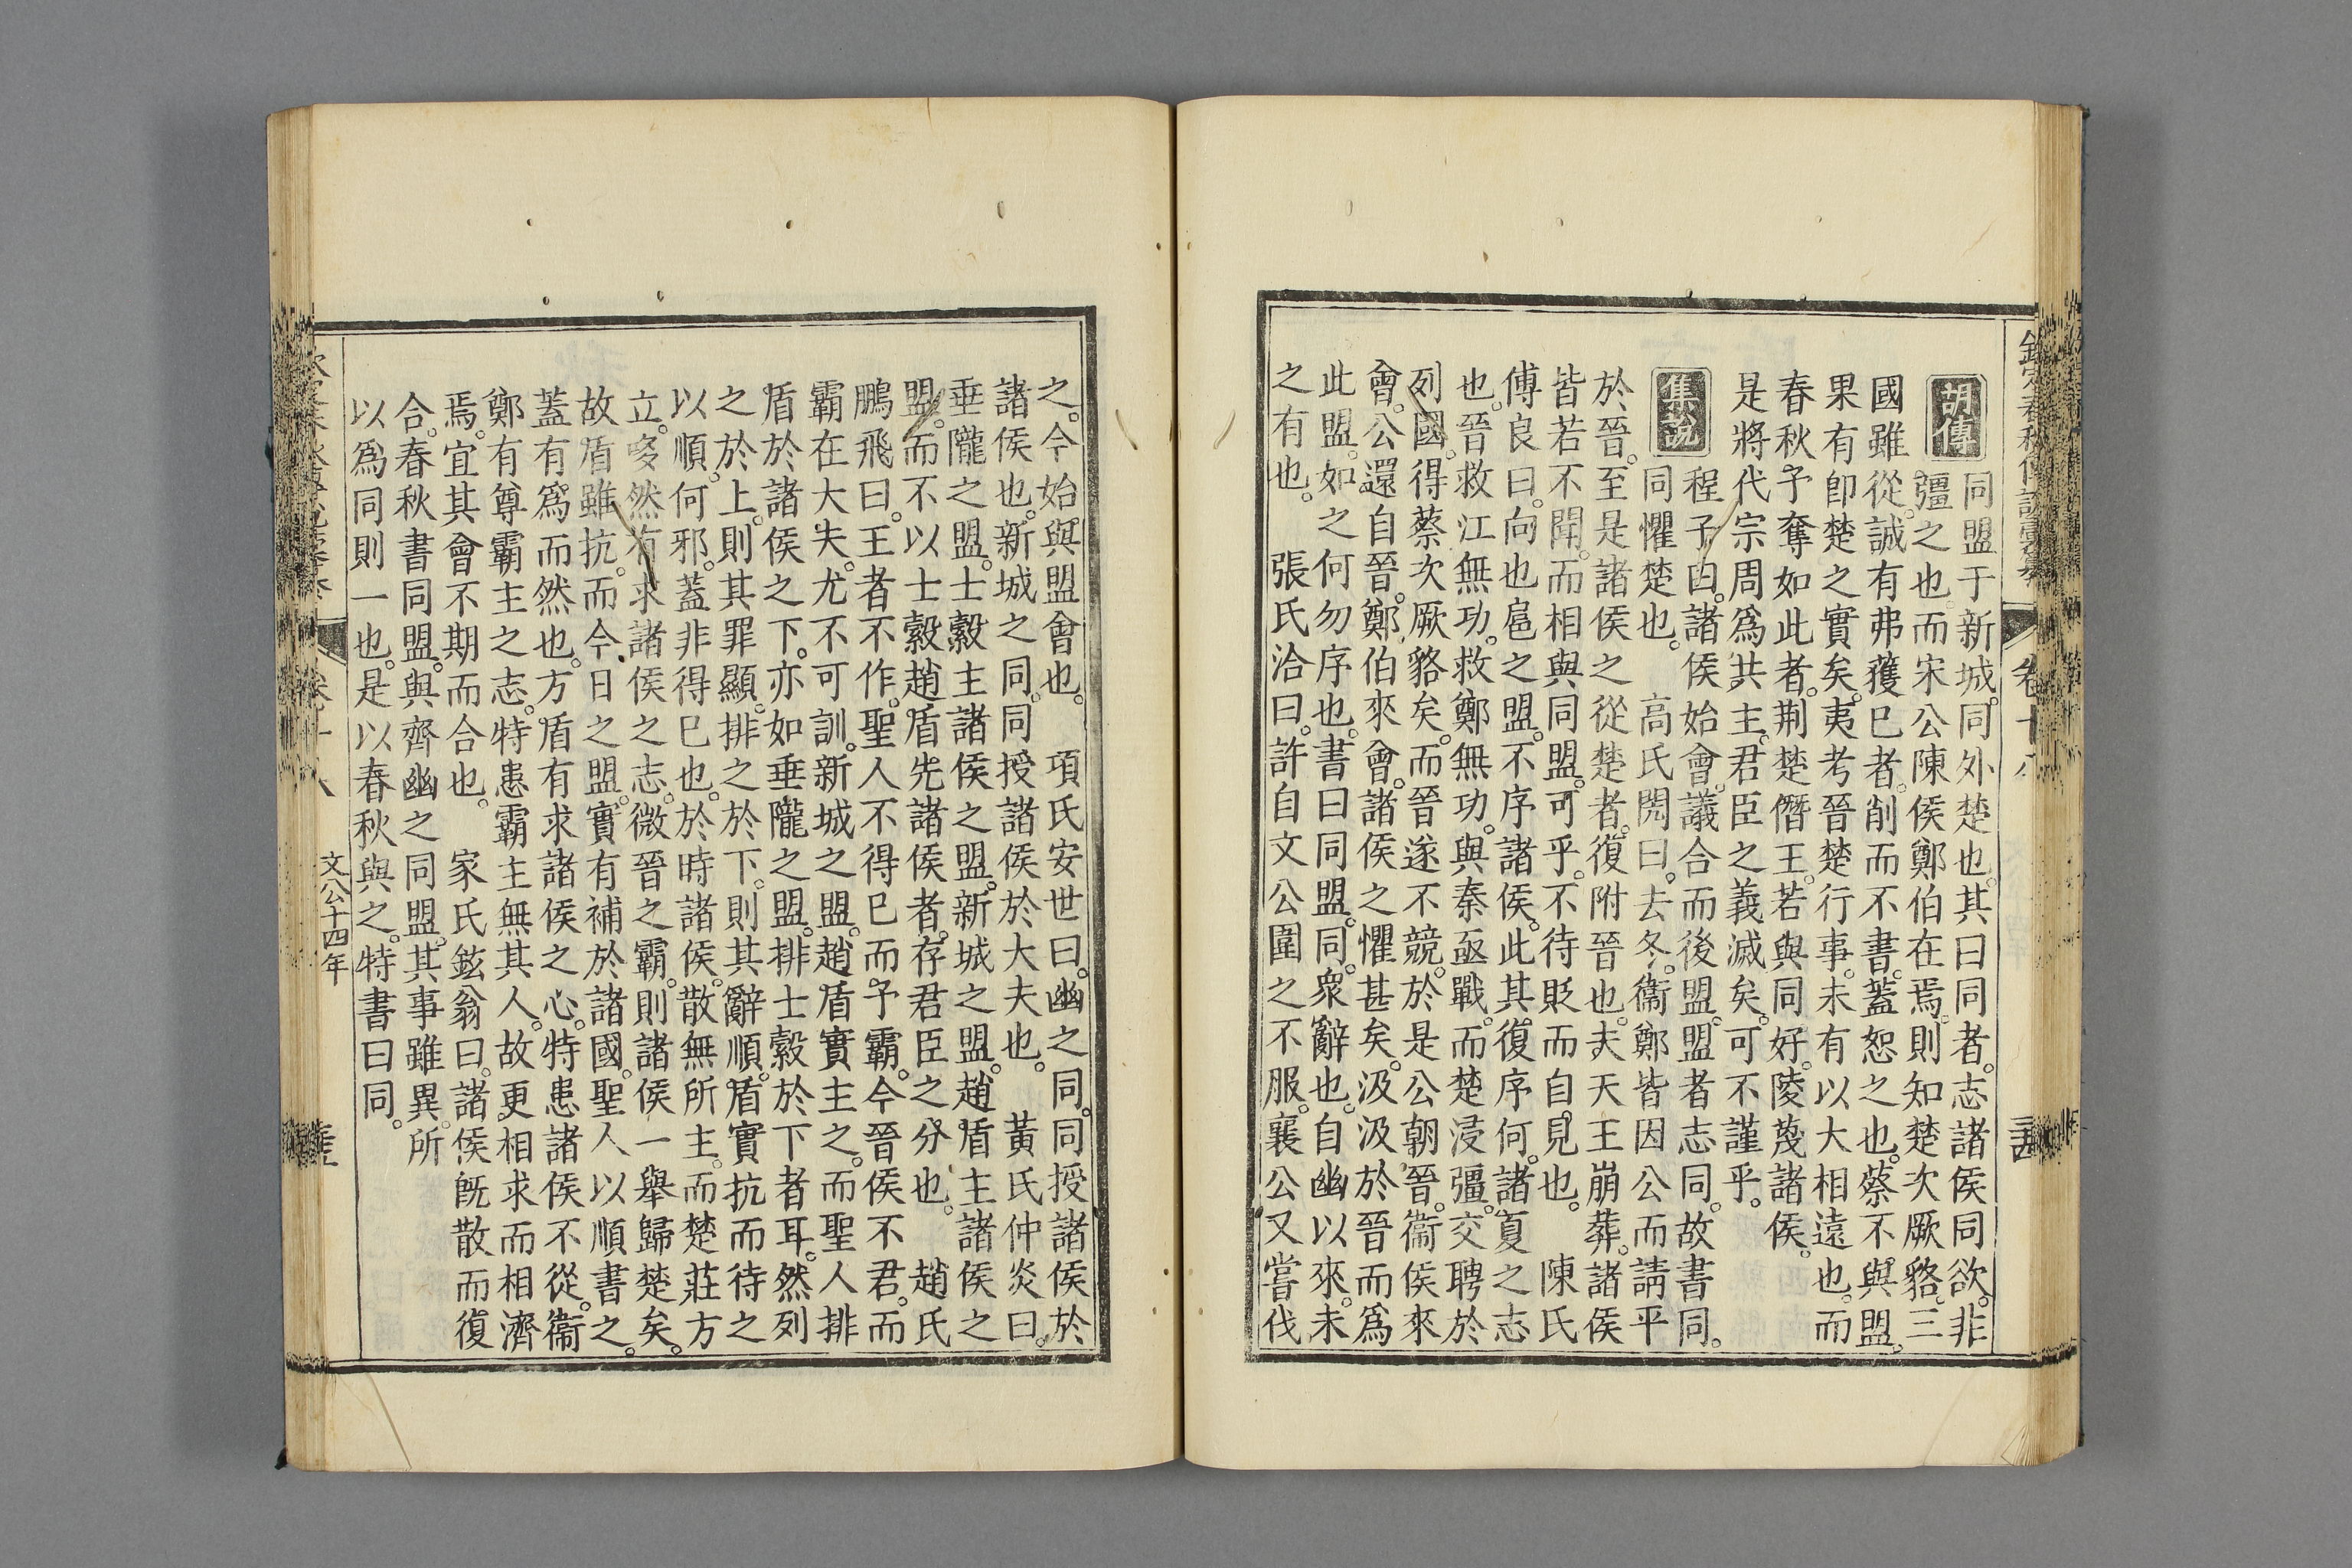 欽定春秋傳說彙纂 卷十八
胡傳 同盟于新城。同外楚也。其曰同者。志諸侯同欲。非
彊之也。而宋公陳侯鄭伯在焉。則知楚次厥貉。三
國雖從。誠有弗獲已者。削而不書。蓋恕之也。蔡不與盟。
果有卽楚之實矣。夷考晉楚行事。未有以大相遠也。而
春秋予奪如此者。荆楚僭王。若與同好。陵蔑諸侯。
是將代宗周爲共主。君臣之義滅矣。可不謹乎。
集說 程子曰。諸侯始會。議合而後盟。盟者志同。故書同。
同懼楚也。 高氏閌曰。去冬。衞鄭皆因公而請平
於晉。至是諸侯之從楚者。復附晉也。夫天王崩葬。諸侯
皆若不聞。而相與同盟。可乎。不待貶而自見也。 陳氏
傅良曰。向也扈之盟。不序諸侯。此其復序何。諸夏之志
也。晉救江無功。救鄭無功。與秦亟戰。而楚浸彊。交聘於
列國。得蔡次厥貉矣。而晉遂不競。於是公朝晉。衞侯來
會。公還自晉。鄭伯來會。諸侯之懼甚矣。汲汲於晉而爲
此盟。如之何勿序也。書曰同盟。同。衆辭也。自幽以來。未
之有也。 張氏洽曰。許自文公圍之不服。襄公又嘗伐
之。今始與盟會也。 項氏安世曰。幽之同。同授諸侯於
諸侯也。新城之同。同授諸侯於大夫也。 黃氏仲炎曰。
垂隴之盟。士縠主諸侯之盟。新城之盟。趙盾主諸侯之
盟。而不以士縠趙盾先諸侯者。存君臣之分也。 趙氏
鵬飛曰。王者不作。聖人不得已而予霸。今晉侯不君。而
霸在大夫。尤不可訓。新城之盟。趙盾實主之。而聖人排
盾於諸侯之下。亦如垂隴之盟。排士縠於下者耳。然列
之於上。則其罪顯。排之於下。則其辭順。盾實抗而待之
以順。何邪。蓋非得已也。於時諸侯。散無所主。而楚莊方
立。㕙然有求諸侯之志。微晉之霸。則諸侯一舉歸楚矣。
故盾雖抗。而今日之盟。實有補於諸國。聖人以順書之。
蓋有爲而然也。方盾有求諸侯之心。特患諸侯不從。衞
鄭有尊霸主之志。特患霸主無其人。故更相求而相濟
焉。宜其會不期而合也。 家氏鉉翁曰。諸侯旣散而復
合。春秋書同盟。與齊幽之同盟。其事雖異。所
以爲同則一也。是以春秋與之。特書曰同。
文公十四年